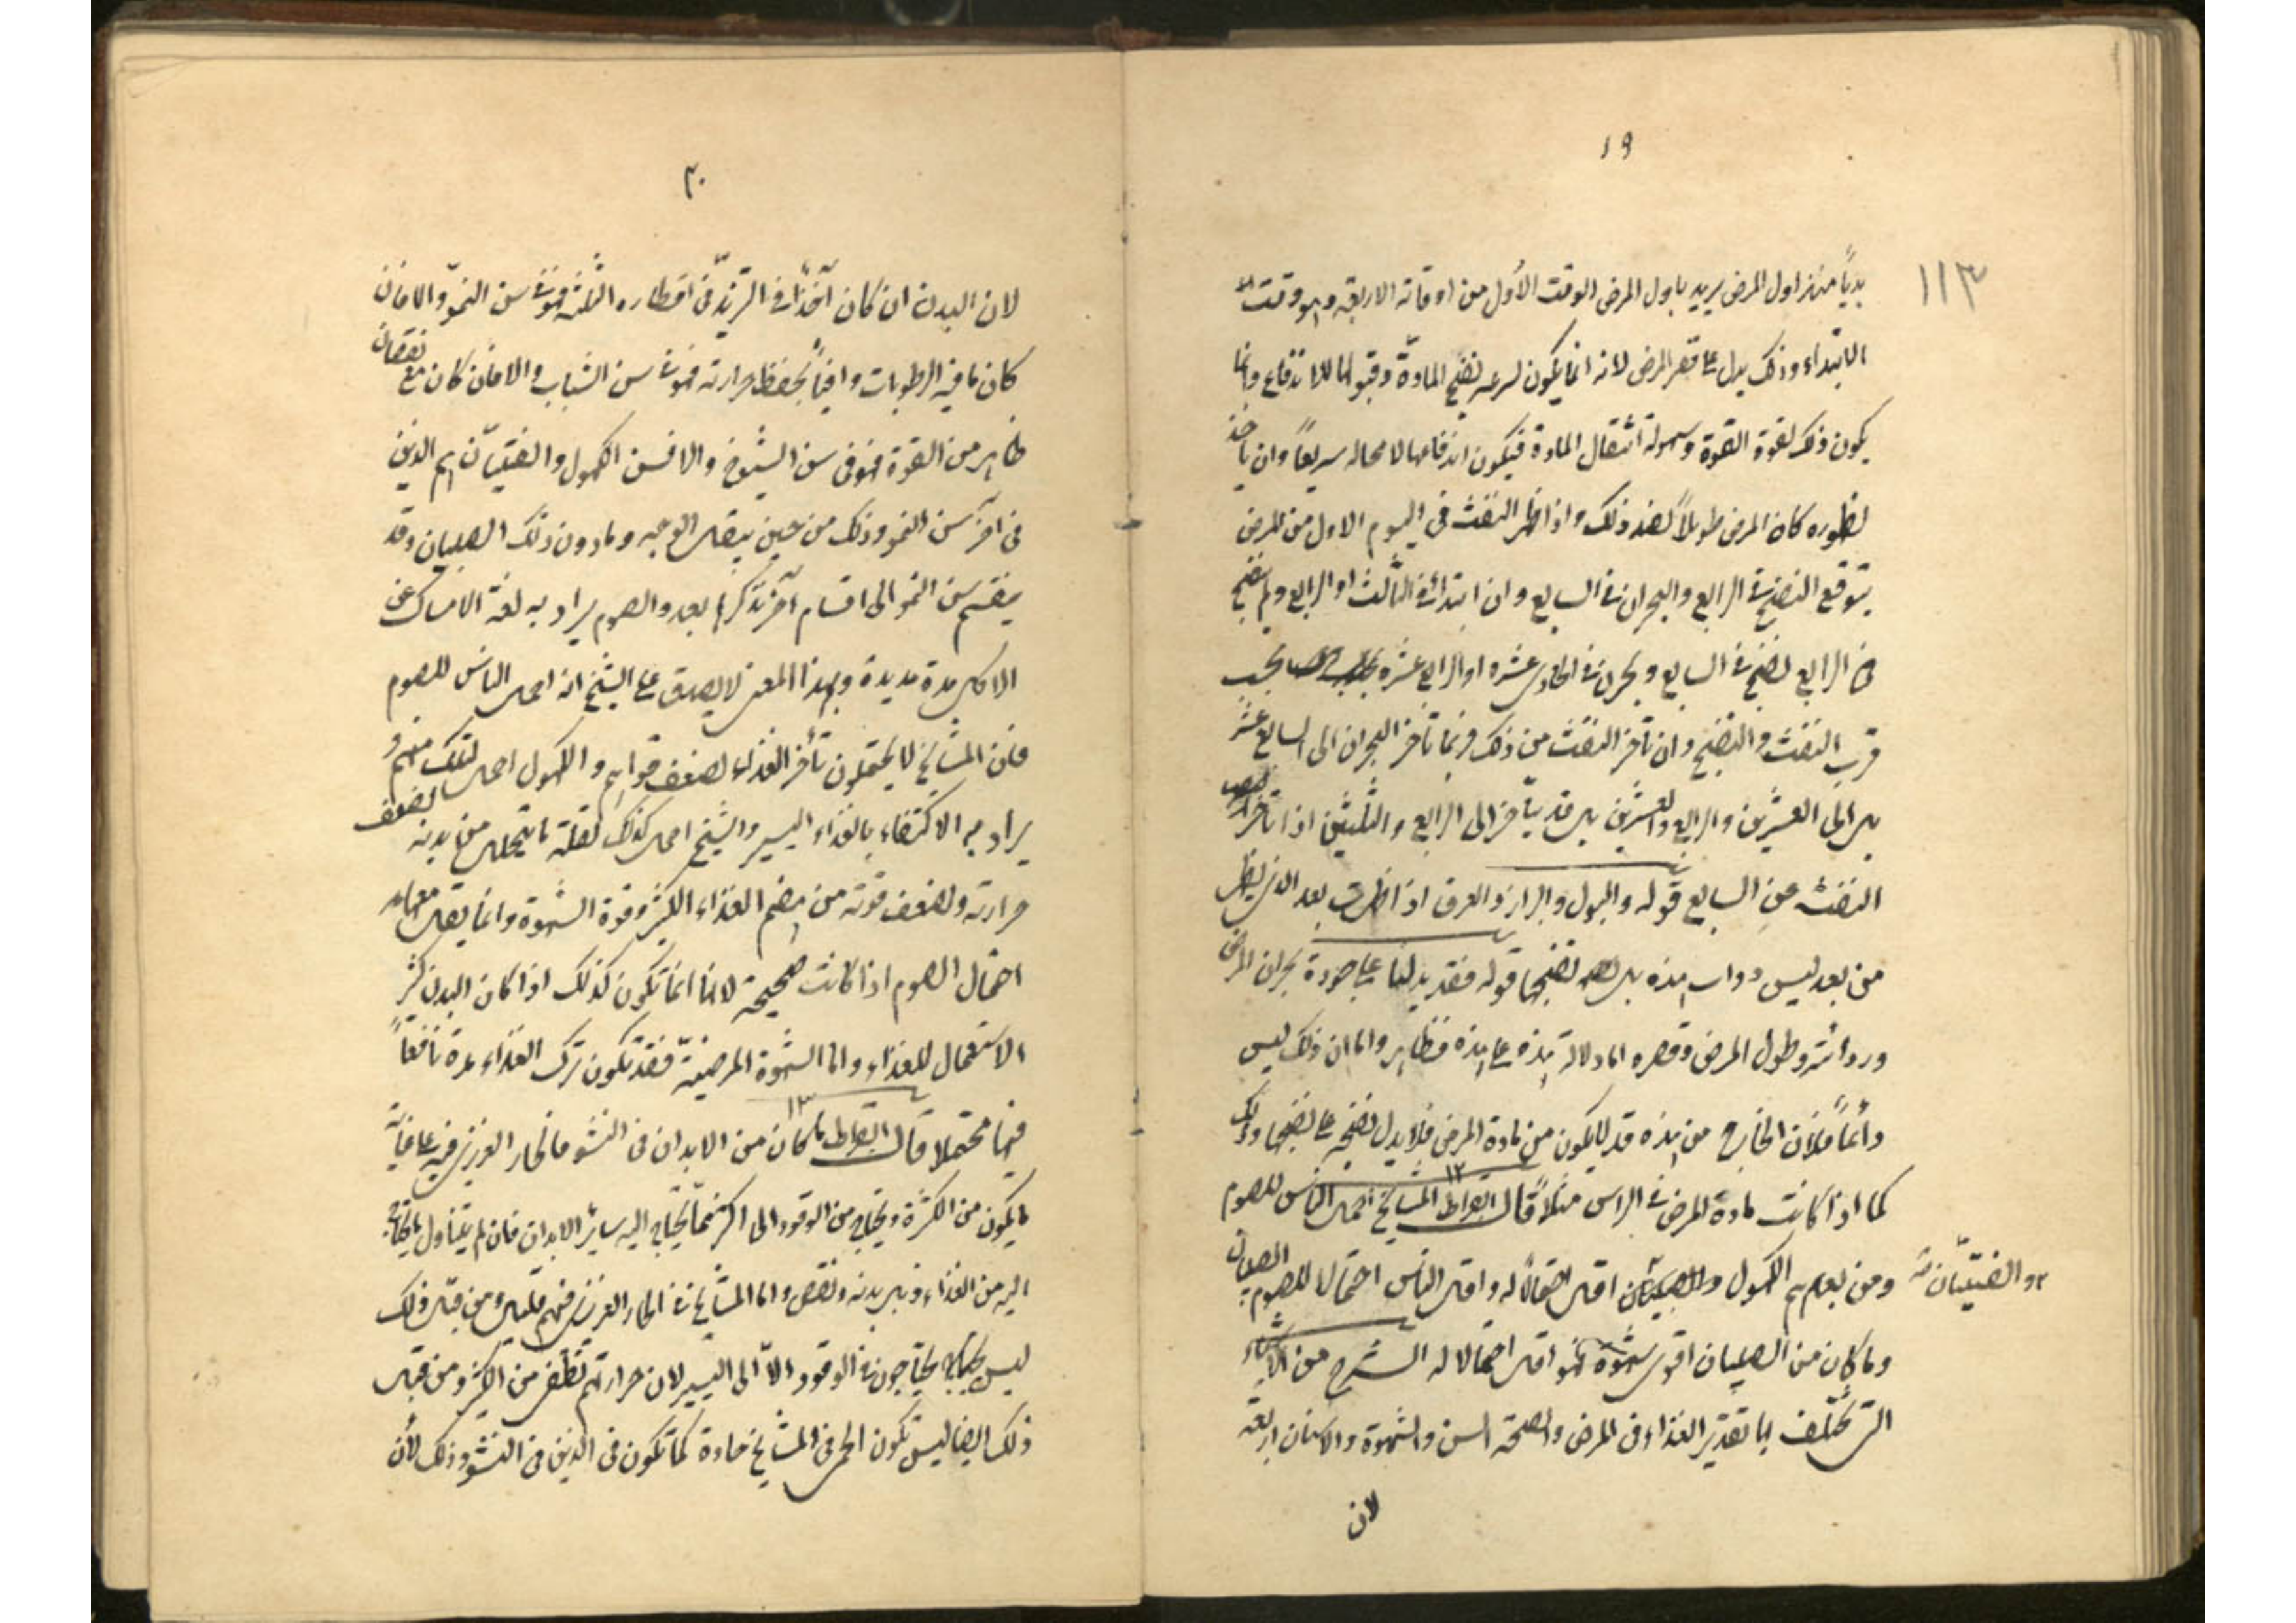 ١٩
١١٣
بدياً منذ اول المرض يريد باول المرض الوقت الأول من اوقاته الاربعة وهو وقت
الابتداء وذلك يدل على قصر المرض لانه انما يكون لسرعة نضج المادة وقبولها للاندفاع وانما
يكون ذلك لقوة القوة وسهولة انتقال المادة فيكون اندفاعها لا محالة سريعاً وان تأخر
ظهوره كان المرض طويلاً لضد ذلك واذا ظهر النفث في اليوم الاول من المرض
يتوقع النضج في الرابع والبحران في السابع وان ابتدأ في الثالث او الرابع ولم ينضج
في الرابع نضج في السابع وبحرن في الحادي عشره او الرابع عشره بحسب
قرب النفث والنضج وان تأخر النفث من ذلك فربما تأخر البحران الى السابع عشر
بل الى العشرين والرابع والعشرين بل قد يتأخر الى الرابع والثلثين اذا تأخر
النفث عن السابع قوله والبول والبراز والعرق اذا ظهرت بعد الذي يظهر
من بعد ليس ذوات هذه بل نضجها قوله فقد يدلنا على جودة بحران المرض
ورداءته وطول المرض وقصره اما دلالة هذه على هذه فظاهر واما ان ذلك ليس
دائماً فلأن الخارج من هذه قد لا يكون من مادة المرض فلا يدل نضجه على نضجها وذلك
كما اذا كانت مادة المرض في الراس مثلاً قال ابقراط المشايخ احمل الناس للصوم
١٢
ومن بعدهم الكهول والصبيان اقل احتمالاً له واقل الناس احتمالا للصوم الصبيان
والفتيان
وما كان من الصبيان اقوى شهوة فهو اقل احتمالا له الشرح من الاشياء
التي تختلف بها تقدير الغذاء في المرض والصحة السن والشهوة والاسنان اربعة
لان
٢٠
لان البدن ان كان آخذاً في التزيد في اقطاره الثلثة فهو في سن النمو والا فان
كان ما فيه الرطوبات وافياً بحفظ حرارته فهو في سن الشباب والا فان كان مع نقصان
ظاهر من القوة فهو في سن الشيوخ والا فسن الكهول والفتيان هم الذين
في آخر سن النمو وذلك من حين يبقل الوجه وما دون ذلك الصبيان وقد
ينقسم سن النمو الى اقسام آخر نذكرها بعد والصوم يراد به لغة الامساك عن
الاكل مدة مديدة وبهذا المعنى لا يصدق على الشيخ انه احمل الناس للصوم
فان المشايخ لا يحتملون تأخر الغذاء لضعف قواهم والكهول احمل لذلك منهم و
يراد به الاكتفاء بالغذاء اليسير والشيخ احمل كذلك لقلة ما يتحلل من بدنه لضعف
حرارته ولضعف قوته من هضم الغذاء الكثير وقوة الشهوة وانما يقل معها
احتمال الصوم اذا كانت صحيحة لانها انما تكون كذلك اذا كان البدن كثير
الاستعمال للغذاء واما الشهوة المرضية فقد يكون ترك الغذاء مدة نافعاً
فيها محتملا قال ابقراط ما كان من الابدان في النشو فالحار الغريزي فيه على غاية
١٣
ما يكون من الكثرة ويحتاج من الوقود الى اكثر مما يحتاج اليه سائر الابدان فان لم يتناول ما يحتاج
اليه من الغذاء ذبل بدنه ونقص واما المشايخ فالحار الغريزي فيهم قليل ومن قبل ذلك
ليس يحتاجون من الوقود الا الى اليسير لان حرارتهم تطفى من الكثير ومن قبل
ذلك ايضا ليس تكون الحمى في المشايخ حادة كما تكون في الذين في النشو وذلك لأن